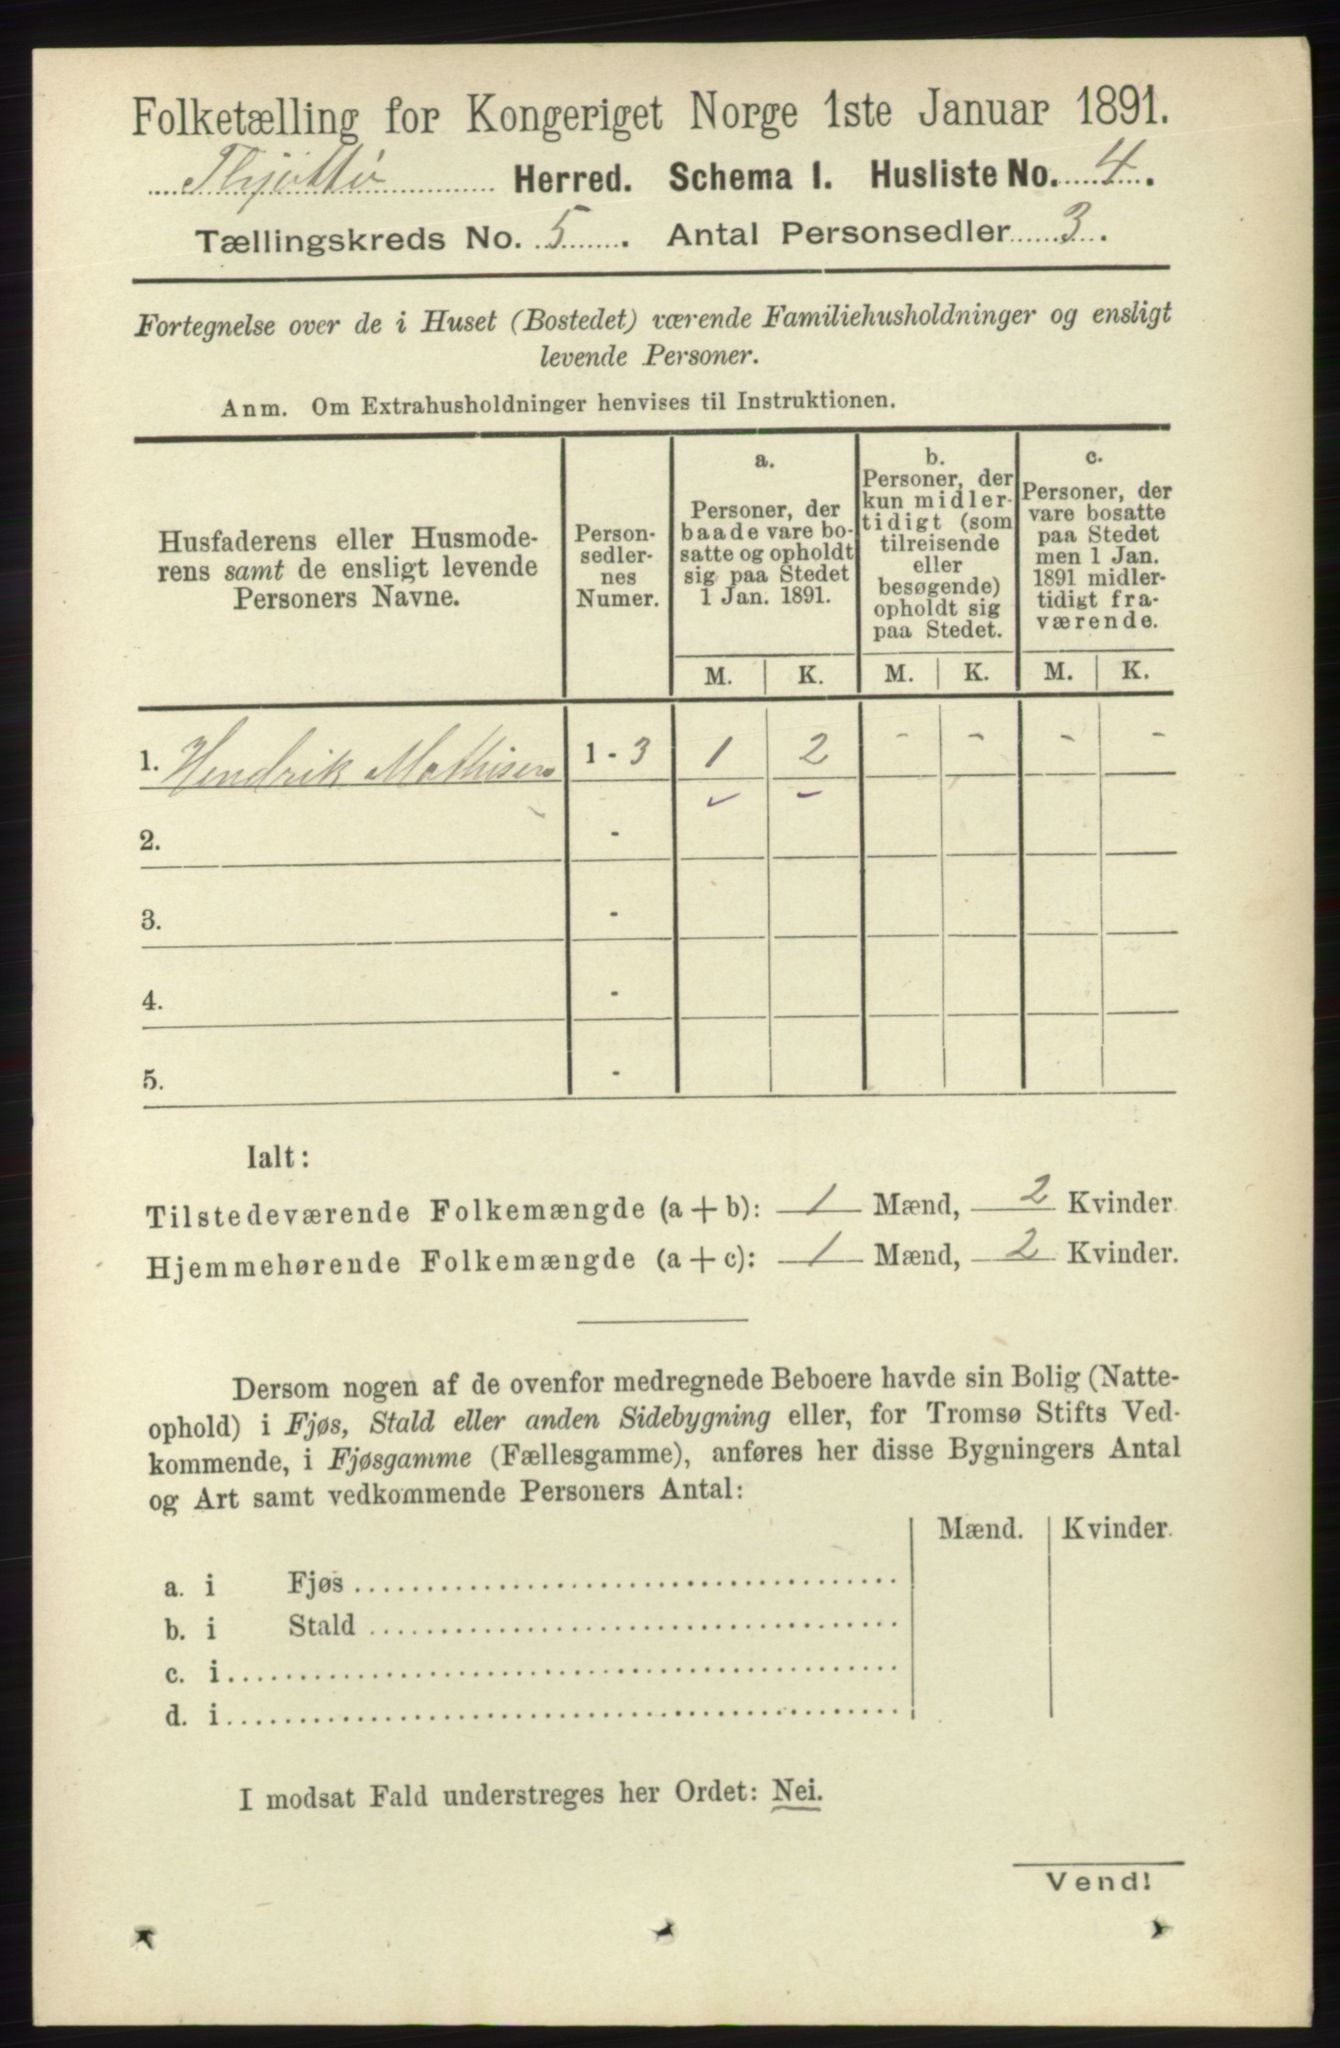 Folketælling for Kongeriget Norge 1ste Januar 1891.
Thjøttø Herred. Schema I. Husliste No. 4.
Tællingskreds No. 5. Antal Personsedler 3.
Fortegnelse over de i Huset (Bostedet) værende Familiehusholdninger og ensligt
levende Personer.
Anm. Om Extrahusholdninger henvises til Instruktionen.
Husfaderens eller Husmode-
rens samt de ensligt levende
Personers Navne.
Person-
sedler-
nes
Numer.
a.
Personer, der
baade vare bo-
satte og opholdt
sig paa Stedet
1 Jan. 1891.
b.
Personer, der
kun midler-
tidigt (som
tilreisende
eller
besøgende)
opholdt sig
paa Stedet.
c.
Personer, der
vare bosatte
paa Stedet
men 1 Jan.
1891 midler-
tidigt fra-
værende.
M. K. M. K. M. K.
1. Hendrik Mathisen 1 - 3 1 2 - - - -
2. -
3. -
4. -
5. -
Ialt:
Tilstedeværende Folkemængde (a + b): 1 Mænd, 2 Kvinder.
Hjemmehørende Folkemængde (a + c): 1 Mænd, 2 Kvinder.
Dersom nogen af de ovenfor medregnede Beboere havde sin Bolig (Natte-
ophold) i Fjøs, Stald eller anden Sidebygning eller, for Tromsø Stifts Ved-
kommende, i Fjøsgamme (Fællesgamme), anføres her disse Bygningers Antal
og Art samt vedkommende Personers Antal:
Mænd. Kvinder.
a. i Fjøs
b. i Stald
c. i
d. i
I modsat Fald understreges her Ordet: Nei.
Vend!